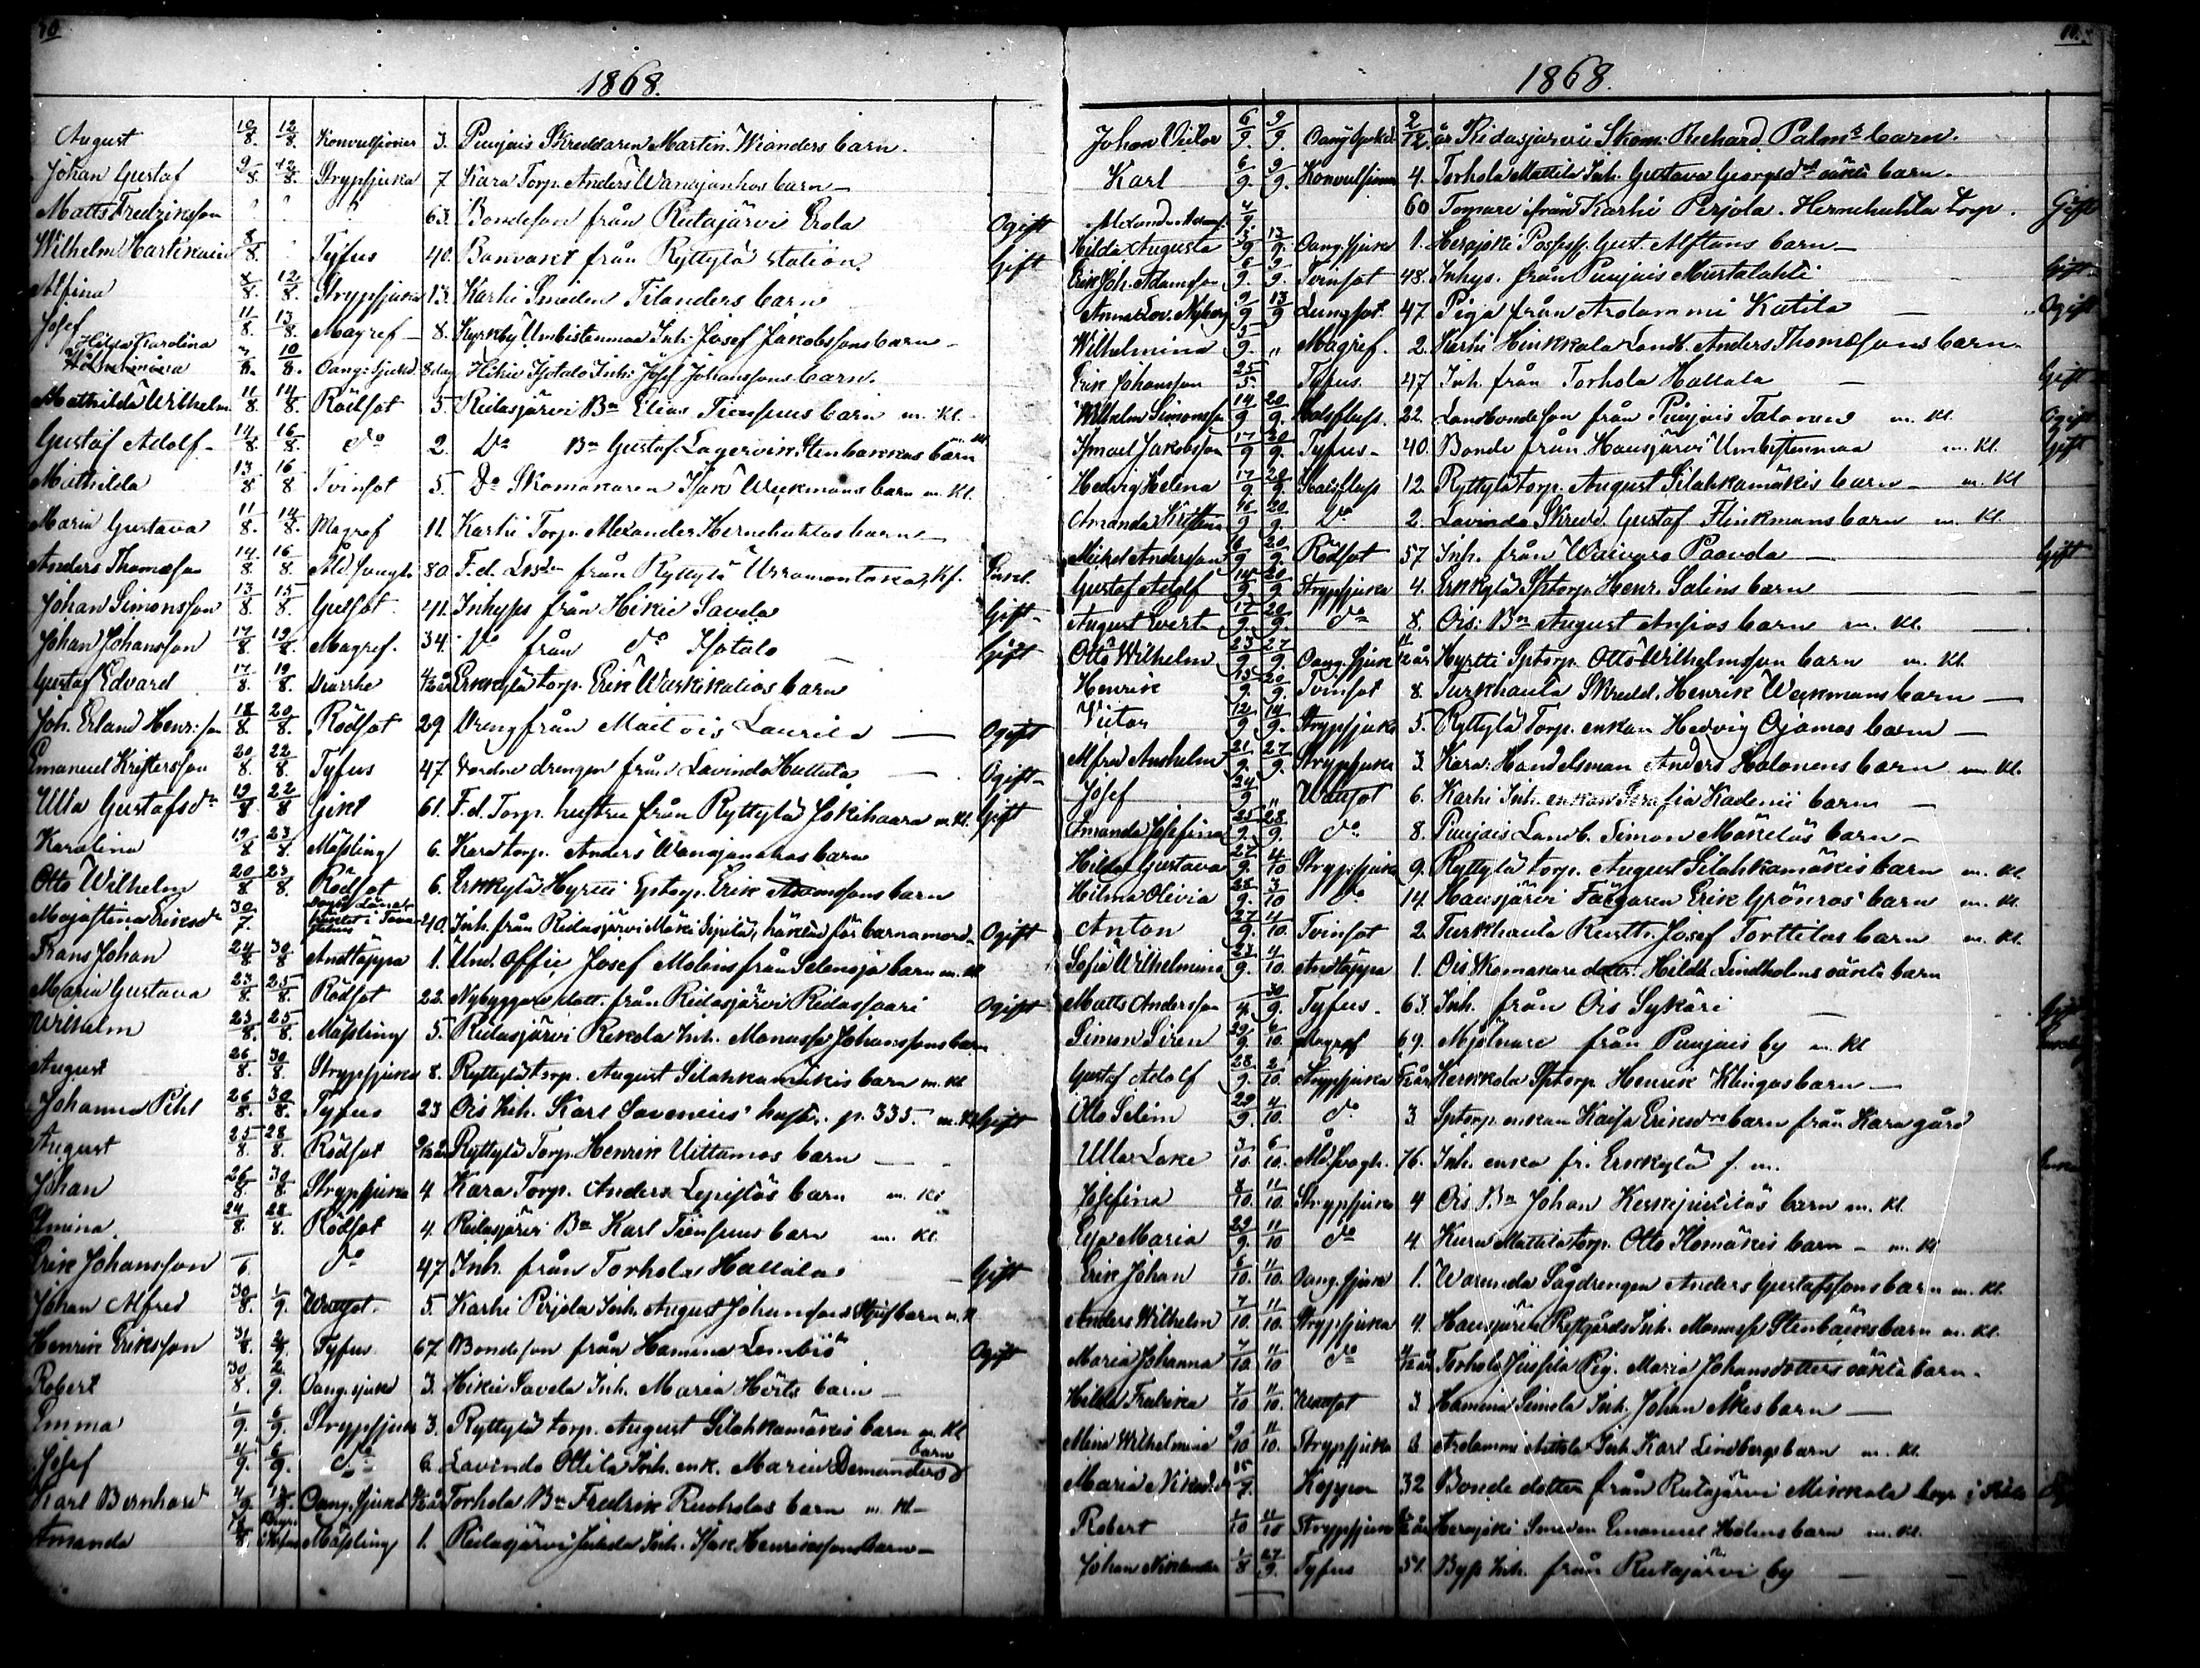 10
1868.
August 10/8. 12/8. Konvulsioner 3. Puujais Skreddaren Martin Wianders barn.
Johan Gustaf 9/8. 12/8. Strypsjuka 7 Kara Torp. Anders Wanajankos barn
Matts Fredriksson 63. Bondeson från Ridasjärvi Erola Ogift
Wilhelm Martikain 8/8. Tyfus 40. Banvakt från Ryttylä station. Gift
Alfina 8/8. 12/8. Strypsjuka 13. Karhi Smeden Tilanders barn
Josef 11/8. 13/8. Magref 8. Kyrkby Umbistenmaa Inh. Josef Jakobssons barn
Hilja Karolina 10/8. Oang. sjukd. 8 dag. Hikiä Isotalo Inh. Josef Johanssons barn.
Mathilda Wilhelm. 11/8. 14/8. Rödsot 5. Ridasjärvi Bn Elias Tiensuus barn m. Kl.
Gustaf Adolf 14/8. 16/8. do 2. Do Bn Gustaf Lagervik Stenbackas barn
Mathilda 13/8 16/8 Tvinsot 5. Do Skomakaren Isak Weckmans barn m. Kl.
Maria Gustava 11/8. 14/8. Magref 11. Karhi Torp. Alexander Hernehuhtas barn
Anders Thomasson 14/8. 16/8. Åld. svagh. 80. F.d. från Ryttylä Enkl.
Johan Simonsson 13/8. 15/8. Gulsot 41. Inhyses från Hikiä Savela Gift
Johan Johansson 17/8 19/8. Magref. 34. Do från do Isotalo Gift
Gustaf Edvard 17/8. 19/8. Diarrhe Erkkylä torp. Erik Waskikalios barn
Joh. Erland Henr.son 18/8. 20/8. Rödsot 29 Dreng från Maitois Laurila Ogift
Emanuel Kristersson 20/8. 22/8. Tyfus 47. drengen från Lavinda Hattula Ogift
Ulla Gustafsdr 19/8. 22/8 Gikt 61. F.d. Torp. hustru från Ryttylä Jokihaara m. Kl. Gift
Karolina 19/8. 23/8. Mässling 6. Kara torp. Anders Wanajankas barn
Otto Wilhelm 20/8 23/8. Rödsot 6. Erkkylä Hyrtti Sptorp. Erik Adamssons barn
Majastina Eriksdr 30/7. 40. Inh. från Ridasjärvi Mäki Seppälä, häktad för barnamord Ogift
Frans Johan 24/8 30/8 Andtäppa 1. Und. Offic. Josef Molins från Selensjö barn m. Kl
Maria Gustava 23/8 25/8. Rödsot 22. Nybyggare dott. från Ridasjärvi Ridassaari Ogift
Wilhelm 23/8. 25/8. Mässling 5. Ridasjärvi Rekola Inh. Manasse Johanssons barn
August 26/8. 30/8. Strypsjuka 8. Ryttylä torp. August Silahkamäkis barn m. Kl
Johanna Pihl 26/8. 30/8. Tyfus 23 Ois Inh. Karl Savenius' hust. p. 335. m. Kl Gift
August 25/8. 28/8. Rödsot Ryttylä Torp. Henrik Uittamos barn
Johan 26/8. 30/8. Strypsjuka 4 Kara Torp. Anders Lepistös barn m. Kl
24/8. 28/8. Rödsot 4. Ridasjärvi Bn Karl Tiensuus barn m. Kl.
Erik Johansson do 47 Inh. från Torhola Hattala Gift
Johan Alfred 30/8. 1/9. Wattsot. 5. Karhi Perjola Inh. August Johanssons barn m. K
Henrik Eriksson 31/8. 2/9. Tyfus 67 Bondeson från Hamina Lembiö Ogift
Robert 30/8. 2/9. Oang. sjukd 3. Hikiä Savela Inh. Maria Hörts barn
Emma 1/9. 6/9. Strypsjuka 3. Ryttylä torp. August Silahkamäkis barn m. Kl
Josef 4/9. 6/9. do 6. Lavinda Ottila Inh. enk. Maria Demanders barn
Karl Bernhard Oang. sjukd Torhola Bn Fredrik Ruoholas barn m. Kl
Amanda Mässling 1. Ridasjärvi Inh. Isak Henrikssons barn
11.
1868.
Johan Victor 6/9. 9/9. Oang. sjukd 2/12. år Ridasjärvi Skom. Richard Palms barn.
Karl 6/9. 9/9. Konvulsioner 4. Torhola Mattila Inh. Gustava Georgsdr oäkta barn.
60 från Karhi Perjola. Hernehuhta Torp. Gift
Hilda Augusta 5/9 13/9. Oang. sjuka 1. Herajoki Possess. Gust. Alftans barn
Erik Joh. Adamsson 6/9. 9/9. Tvinsot 48. Inhys. från Puujais Mustalahti Gift
Anna Lov. Nyberg 9/9 13/9 Lungsot. 47. Piga från Arolammi Katila Ogift
Wilhelmina 5/9. " Magref. 2. Karhi Heikkala Landb. Anders Thomassons barn
Erik Johansson 25/5 Tyfus. 47 Inh. från Torhola Hattala Gift
Wilhelm Simonsson 14/9 20/9. Halsfluss. 22. Landbondeson från Puujais Talonen m. Kl. Ogift
Ismael Jakobsson 17/9 20/9. Tyfus 40. Bonde från Hausjärvi Umbistenmaa m. Kl. Gift
Hedvig Helena 17/9. 20/9. Halsfluss 12. Ryttylä torp. August Silahkamäkis barn m. Kl
Amanda Kristina 16/9 20/9. Do 2. Lavinda Skredd. Gustaf Flinkmans barn m. Kl.
Mickel Andersson 20/9. Rödsot 57. Inh. från Waivaro Paavola Gift
Gustaf Adolf 14/9 20/9. Strypsjuka 4. Erkkylä Sptorp. Henr. Salins barn
August Evert 17/9. 20/9. do 8. Ois. Bn August Anssas barn m. Kl.
Otto Wilhelm 23/9. 27/9. Oang. sjuk 11/12 år Hyrtti Sptorp. Otto Wilhelmsson barn m. Kl.
Henrik 15/9. 20/9. Tvinsot 8. Turkhauta Skredd. Henrik Weckmans barn
Victor 12/9. 14/9. Strypsjuka 5. Ryttylä Torp. enkan Hedvig Ojamas barn
Alfred Anshelm 21/9. 27/9. Strypsjuka 3. Kara Handelsman Anders Halonens barn m. Kl.
Josef 24/9 " Wattsot 6. Karhi Inh. enkan Serafia Kadenii barn
Amanda Josefina 25/9. 28/9. do 8. Puujais Landb. Simon Mäkeläs barn
Hilda Gustava 27/9. 4/10 Strypsjuka 9. Ryttylä torp. August Silahkamäkis barn m. Kl
Hilma Olivia 28/9. 3/10 do 14. Hausjärvi Färgaren Erik Grönroos barn m. Kl.
Anton 27/9. 4/10. Tvinsot 2. Turkhauta Rustth. Josef Torttilas barn m. Kl.
Sofia Wilhelmina 23/9. 4/10. Andtäppa 1. Ois Skomakare dottr. Hilda Lindholms oäkta barn
Matts Andersson 30/9. Tyfus 63. Inh. från Ois Sykäri Gift
Simon Siren 29/9. 6/10. Magref 69. Mjölnare från Puujais by m. Kl
Gustaf Adolf 28/9. 2/10. Strypsjuka Kerkkola Sptorp Henrik Klingas barn
Otto Selim 29/9. 4/10. do 3 Sptorp. enkan Kaisa Eriksdrs barn från Kara gård
Ulla Lake 3/10. 6/10. Åld. svagh. 76. Inh. enka fr. Erkkylä
Josefina 8/10. 11/10. Strypsjuka 4 Ois Bn Johan Keskiputtilas barn m. Kl.
Eva Maria 29/9. 11/10 do 4. Kuru Mattila torp. Otto Homäkis barn m. Kl
Erik Johan 6/10. 11/10. Oang. sjuka 1. Warunda Sågdrengen Anders Gustafssons barn m. Kl.
Anders Wilhelm 7/10. 11/10. Strypsjuka 4. Hausjärvi Prestgårds Inh. Manasse Stenbäcks barn m. Kl.
Maria Johanna 7/10 11/10 do Torhola Jussila Pig. Maria Johansdotters oäkta barn.
Hilda Fredrika 7/10 11/10 Wattsot 3 Hamina Simola Inh. Johan Åkes barn
Mina Wilhelmina 9/10 11/10. Strypsjuka Arolammi Anttola Inh. Karl Lindbergs barn m. Kl.
Maria Koppor 32 Bonde dotter från Ridasjärvi Mikkola
Robert 1/10 11/10 Strypsjuka Herajoki Smeden Emanuel Holms barn m. Kl.
Johan Niklander 1/8 27/9. Tyfus 51. Inh. från Ridasjärvi by